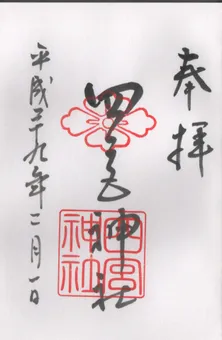 奉拝
四宮神社
四宮神社
平成二十九年二月一日